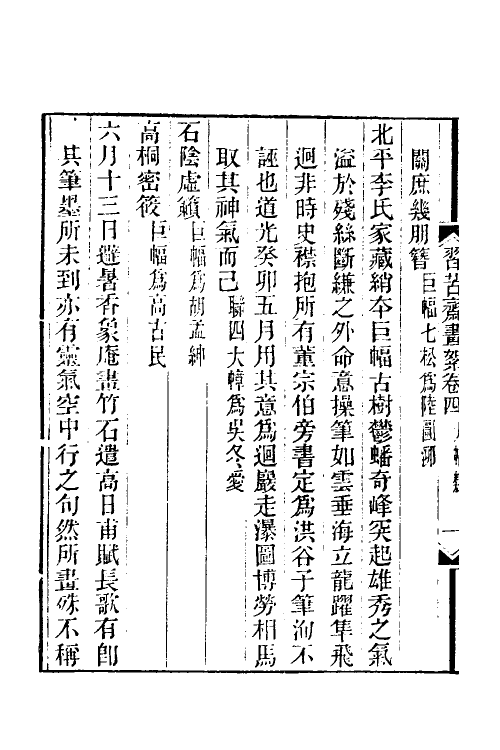 習苦齋畫絮卷四
一
關庶幾朋簪巨幅七松爲陸
北平李氏家藏綃本巨幅古樹鬱蟠奇峰突起雄秀之氣
溢於殘絲斷縑之外命意操筆如雲垂海立龍躍隼飛
迥非時史襟抱所有董宗伯旁書定爲洪谷子筆洵不
誣也道光癸卯五月用其意爲迴巖走瀑圖博勞相馬
取其神氣而已聯四大幛爲吳冬愛
石陰虛籟巨幅爲胡孟紳
高桐密筱巨幅爲高古民
六月十三日避暑香象庵畫竹石遣高日甫賦長歌有卽
其筆墨所未到亦有靈氣空中行之句然所畫殊不稱